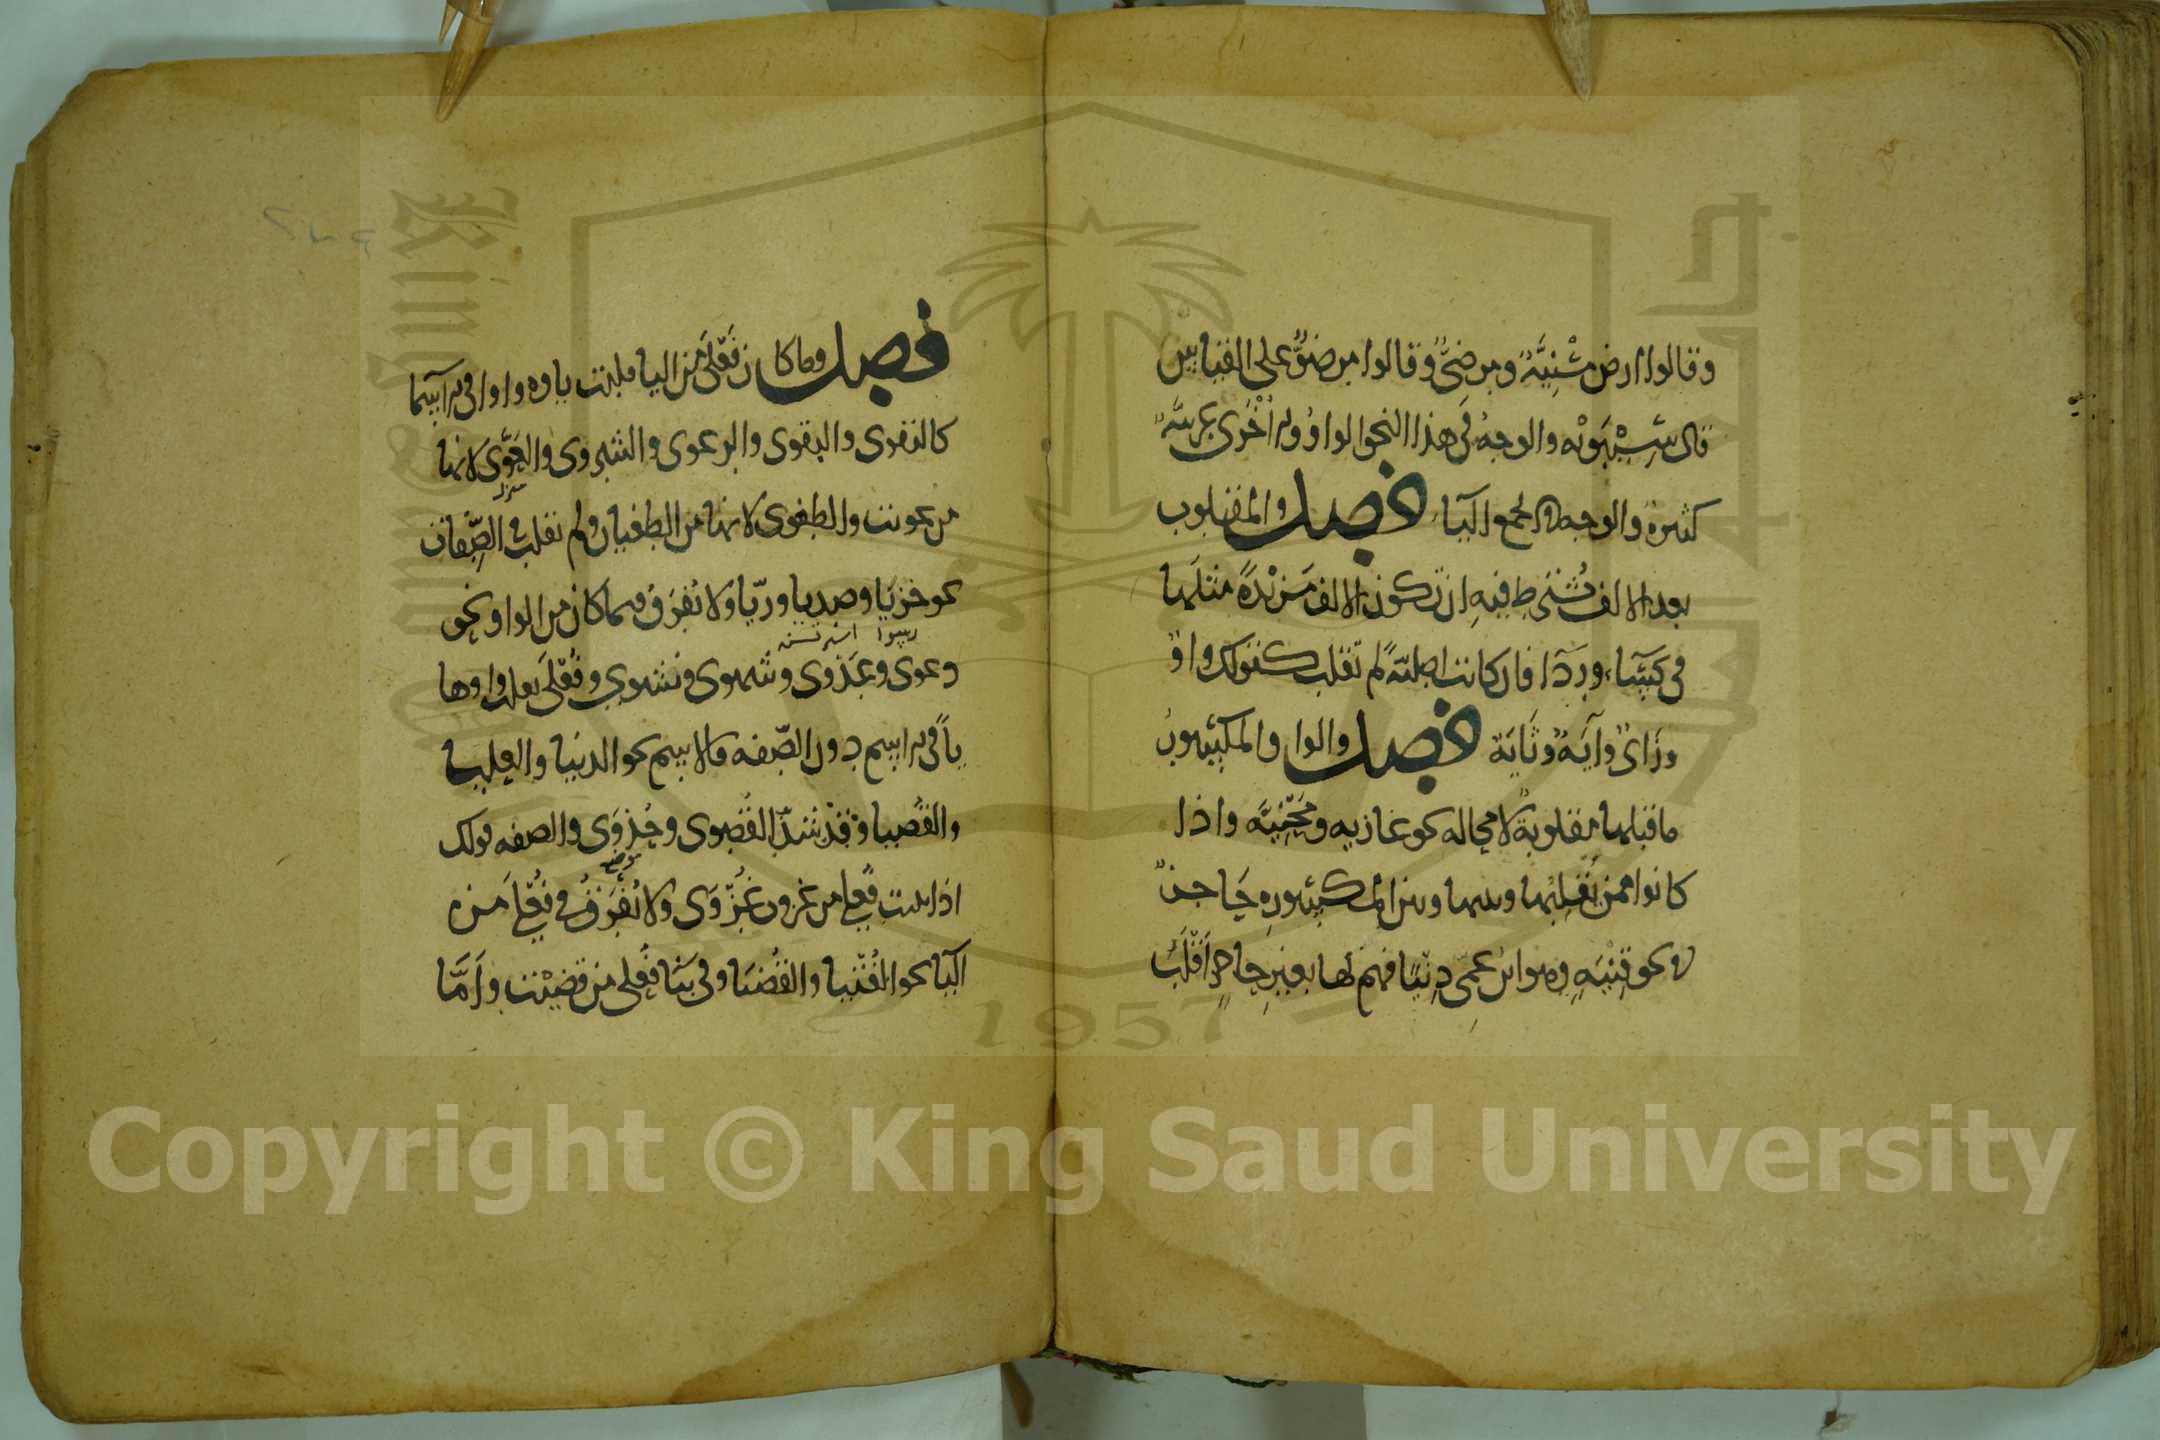 وقالوا ارض مسْنِيَّةٌ ومرضِيٌّ وقالوا مرضوٌّ على القياس
قال سِيْبَوَيْه والوجهُ في هذا النحو الواوُ والاُخْرى عربيَّةٌ
كثيرة والوجه في الجمع الياء فصل والمقلوب
بعد الالف يُشْترط فيهِ ان تكون الالف مَزِيْدةً مثلها
في كِسَاء ورِدَاء فان كانت اصليّةً لم تقلب كقولك واوٌ
وزَايٌ وآيَةٌ وثَايَة فصل والواو المكسورُ
ما قبلها مقلوبةٌ لا محاله نحو غازيه ومَحْنِيَة واذا
كانوا ممن يُقلبها وبينها وبين المكسورِ حَاجزٌ
في نحو قِنْيَةٍ وهو ابن عمّي دِنْيًا فهم لها بغير حاجزٍ اَقْلَبُ
فصل وما كان فَعْلَى من اليا قلبت ياوه واوا في الاسما
كالتقوى والبقوى والرعوى والشروى والعَوَّى لانها
من عويت والطغوى لانها من الطغيان ولم تقلب في الصِّفات
نحو خزيَا وصديا وريّا ولا يُفرَق فيما كان من الواو نحو
دعوى وعَدْوى وشهوى ونشوى وفُعْلى تقلب واوها
ياً في الاسم دون الصّفه فالاسم نحو الدنيا والعليا
والقُصيا وقد شذّ القُصْوى وحُزوَى والصفه قولك
اذا بنيت فُعلى من غزوت غُزْوَى ولا يُفرَقُ في فُعْلَى من
اليا نحو الفُتْيا والقُضيَا وفي بنا فُعلى من قضيْت واَمَّا
Copyright © King Saud University
1957